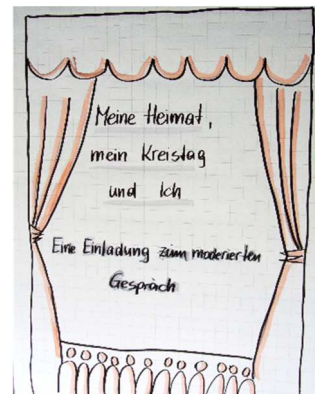 Meine Heimat,
mein Kreistag
und Ich
Eine Einladung zum moderierten
Gespräch